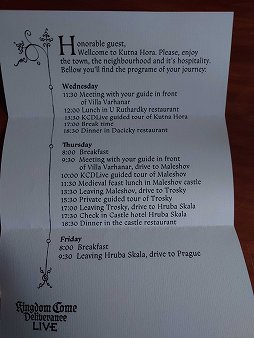 Honorable guest,
Wellcome to Kutna Hora. Please, enjoy
the town, the neighbourhood and it's hospitality.
Bellow you'll find the programe of your journey:
Wednesday
11:30 Meeting with your guide in front
of Villa Varhanar
12:00 Lunch in U Ruthardky restaurant
13:30 KCDLive guided tour of Kutna Hora
17:00 Break time
18:30 Dinner in Dacicky restaurant
Thursday
8:00 Breakfast
9:30 Meeting with your guide in front
of Villa Varhanar, drive to Maleshov
10:00 KCDLive guided tour of Maleshov
11:30 Medieval feast lunch in Maleshov castle
13:30 Leaving Maleshov, drive to Trosky
15:30 Private guided tour of Trosky
17:00 Leaving Trosky, drive to Hruba Skala
17:30 Check in Castle hotel Hruba Skala
18:30 Dinner in the castle restaurant
Friday
8:00 Breakfast
9:30 Leaving Hruba Skala, drive to Prague
Kingdom Come
Deliverance
LIVE